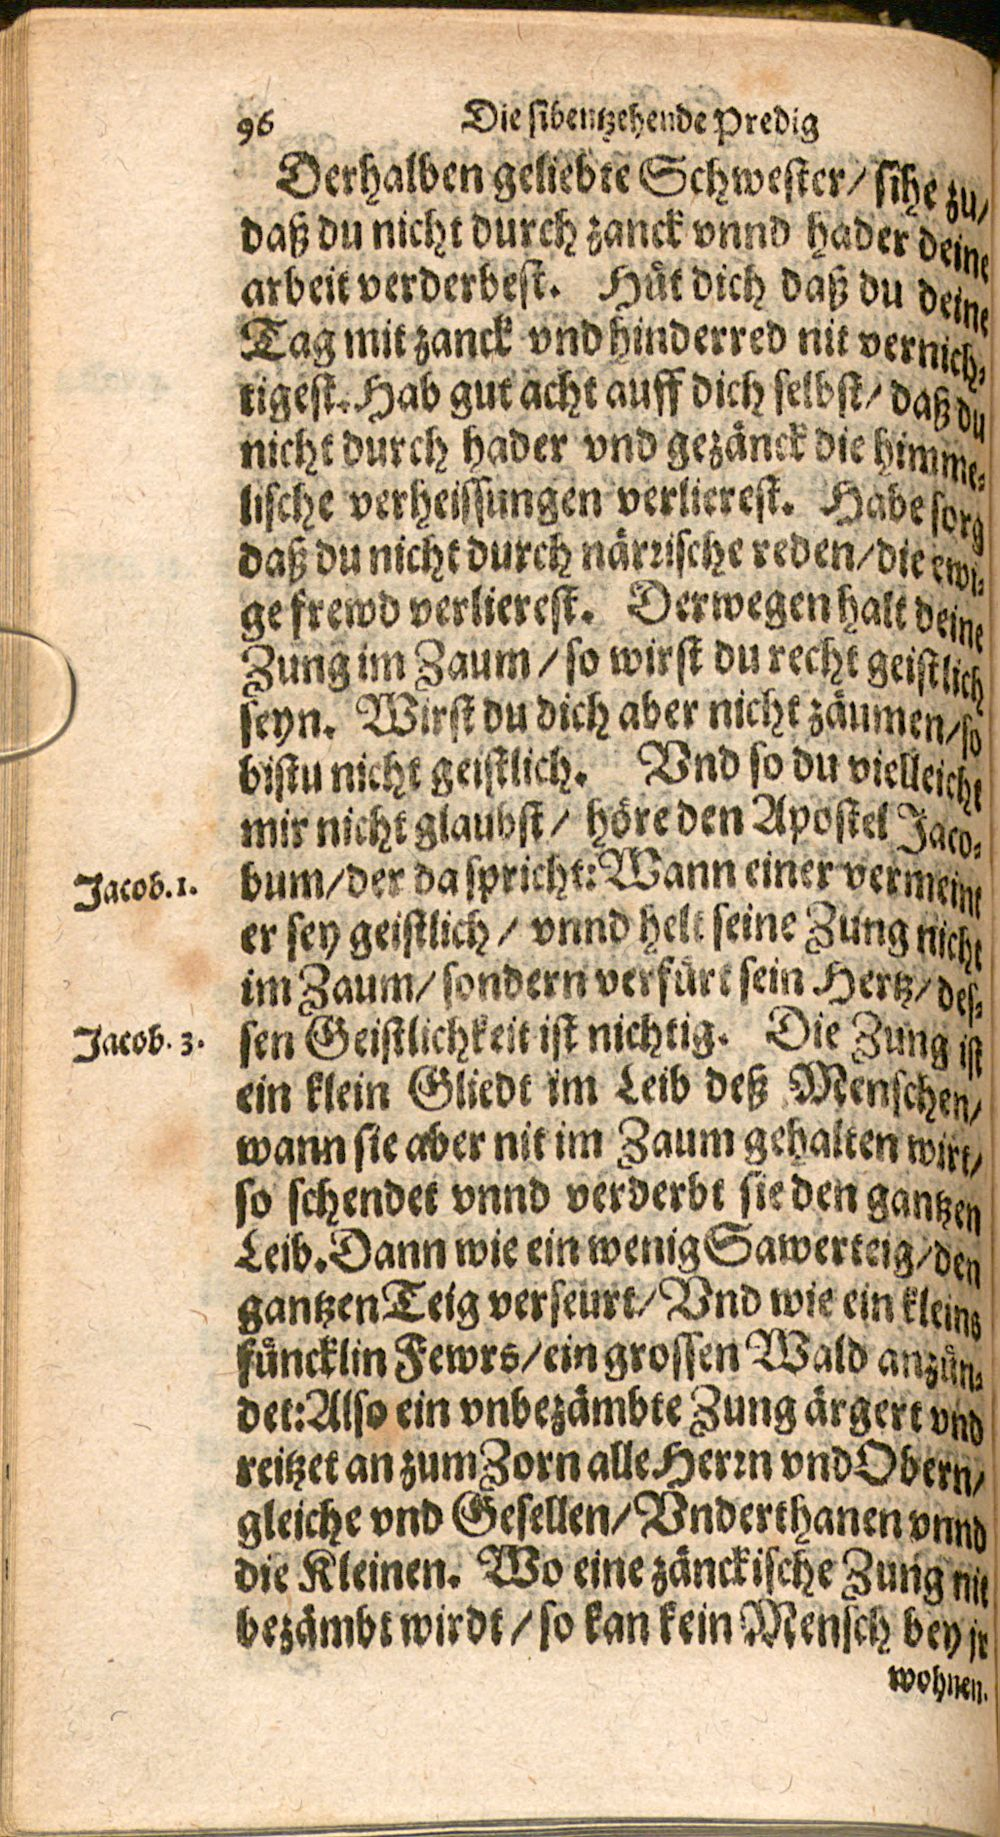 96 Die sibentzehende Predig
Derhalben geliebte Schwester/ sihe zu/
daß du nicht durch zanck vnnd hader deine
arbeit verderbest. Hüt dich daß du deine
Tag mit zanck vnd hinderred nit vernich-
tigest. Hab gut acht auff dich selbst/ daß du
nicht durch hader vnd gezänck die himme-
lische verheissungen verlierest. Habe sorg
daß du nicht durch närrische reden/ die ewi-
ge frewd verlierest. Derwegen halt deine
Zung im Zaum/ so wirst du recht geistlich
seyn. Wirst du dich aber nicht zäumen/ so
bistu nicht geistlich. Vnd so du vielleicht
mir nicht glaubst/ höre den Apostel Jaco-
Jacob. 1. bum/ der da spricht: Wann einer vermeint
er sey geistlich/ vnnd helt seine Zung nicht
im Zaum/ sondern verfürt sein Hertz/ des-
Jacob. 3. sen Geistlichkeit ist nichtig. Die Zung ist
ein klein Gliedt im Leib deß Menschen/
wann sie aber nit im Zaum gehalten wirt/
so schendet vnnd verderbt sie den gantzen
Leib. Dann wie ein wenig Sawerteig/ den
gantzen Teig verseurt/ Vnd wie ein kleins
füncklin Fewrs/ ein grossen Wald anzün-
det: Also ein vnbezämbte Zung ärgert vnd
reitzet an zum Zorn alle Herrn vnd Obern/
gleiche vnd Gesellen/ Vnderthanen vnnd
die Kleinen. Wo eine zänckische Zung nit
bezämbt wirdt/ so kan kein Mensch bey jr
wohnen.